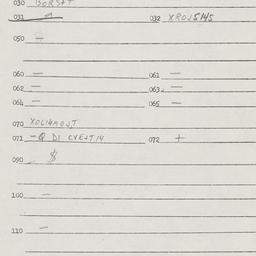 030
031 — 032 XROJ5145
050 —
060 — 061 —
062 — 063 —
064 — 065 —
070
071 -Q DI CVEJT14 072 +
090 $
100 —
110 —